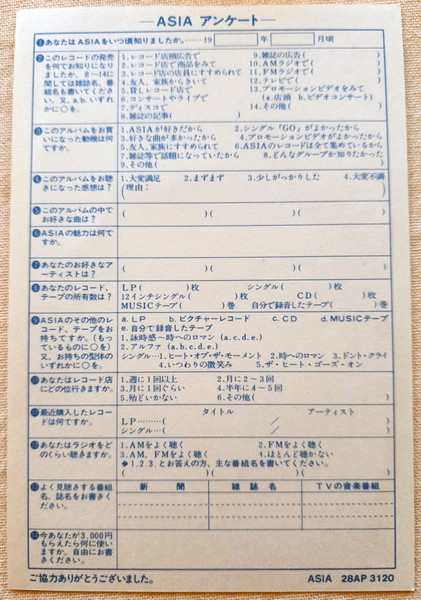 ASIA アンケート
①あなたはASIAをいつ頃知りましたか。……19 年 月頃
②このレコードの発売を何でお知りになりましたか。8～14に関しては雑誌名、番組名も書いてください。又、a.b.いずれかに○を。
1.レコード店頭広告で 9.雑誌の広告( )
2.レコード店で商品をみて 10.AMラジオで( )
3.レコード店の店員にすすめられて 11.FMラジオで( )
4.友人、家族からきいて 12.テレビで( )
5.貸しレコード店で 13.プロモーションビデオをみて
6.コンサートやライブで (a.店頭 b.ビデオコンサート)
7.ディスコで 14.その他( )
8.雑誌の記事( )
③このアルバムをお買いになった動機は何ですか。
1.ASIAが好きだから 2.シングル「GO」がよかったから
3.好きな曲が多かったから 4.プロモーションビデオがよかったから
5.友人、家族にすすめられて 6.ASIAのレコードは全て集めているから
7.雑誌等で話題になっていたから 8.どんなグループか知りたかった
9.その他( )
④このアルバムをお聴きになった感想は?
1.大変満足 2.まずまず 3.少しがっかりした 4.大変不満
(理由: )
⑤このアルバムの中でお好きな曲は?
( )( )( )
⑥ASIAの魅力は何ですか。
⑦あなたのお好きなアーティストは?
( )( )( )
⑧あなたのレコード、テープの所有数は?
LP( )枚 シングル( )枚
12インチシングル( )枚 CD( )枚
MUSICテープ( )巻 自分で録音したテープ( )巻
⑨ASIAのその他のレコード、テープをお持ちですか。(もっているものに○を)又、お持ちの型体のいずれかに○を。
a.LP b.ピクチャーレコード c.CD d.MUSICテープ
e.自分で録音したテープ
1.詠時感～時へのロマン (a.c.d.e.)
2.アルファ (a.b.c.d.e.)
シングル…1.ヒート・オブ・ザ・モーメント 2.時へのロマン 3.ドント・クライ
4.いつわりの微笑み 5.ザ・ヒート・ゴーズ・オン
⑩あなたはレコード店にどの位行きますか。
1.週に1回以上 2.月に2～3回
3.月に1回ぐらい 4.半年に4～5回
5.殆どいかない 6.その他( )
⑪最近購入したレコードは何ですか。
タイトル アーティスト
LP………( / )
シングル…( / )
⑫あなたはラジオをどのくらい聴きますか。
1.AMをよく聴く 2.FMをよく聴く
3.AM、FMをよく聴く 4.ほとんど聴かない
◆1.2.3.とお答えの方、主な番組名を書いてください。
( )( )( )
⑬よく見聴きする番組名、誌名をお書きください。
新聞 雑誌名 TVの音楽番組
⑭今あなたが3,000円もらえたら何に使いますか。自由にお書きください。
ご協力ありがとうございました。 ASIA 28AP 3120